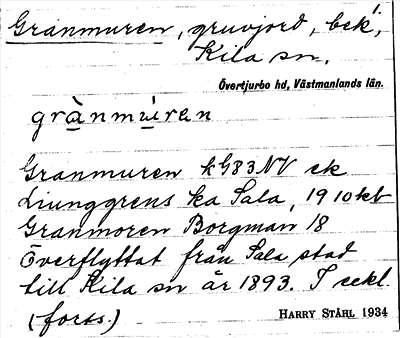 Granmuren, gruvjord, bek.,
Kila sn.
Övertjurbo hd, Västmanlands län.
grànmúren
Granmuren kG83NV ek
Ljunggrens ka Sala, 1910kb
Granmoren Borgman 18
Överflyttat från Sala stad
till Kila sn år 1893. I eckl.
(forts.)
HARRY STÅHL 1934